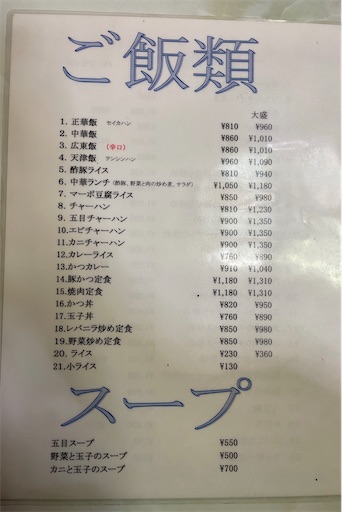 ご飯類
大盛
1. 正華飯 セイカハン ¥810 ¥960
2. 中華飯 ¥860 ¥1,010
3. 広東飯 (辛口) ¥860 ¥1,010
4. 天津飯 テンシンハン ¥960 ¥1,090
5. 酢豚ライス ¥810 ¥940
6. 中華ランチ (酢豚、野菜と肉の炒め煮、サラダ) ¥1,050 ¥1,180
7. マーボ豆腐ライス ¥850 ¥980
8. チャーハン ¥810 ¥1,230
9. 五目チャーハン ¥900 ¥1,350
10.エビチャーハン ¥900 ¥1,350
11.カニチャーハン ¥900 ¥1,350
12.カレーライス ¥760 ¥890
13.かつカレー ¥910 ¥1,040
14.豚かつ定食 ¥1,180 ¥1,310
15.焼肉定食 ¥1,180 ¥1,310
16.かつ丼 ¥820 ¥950
17.玉子丼 ¥760 ¥890
18.レバニラ炒め定食 ¥850 ¥980
19.野菜炒め定食 ¥850 ¥980
20. ライス ¥230 ¥360
21.小ライス ¥130
スープ
五目スープ ¥550
野菜と玉子のスープ ¥500
カニと玉子のスープ ¥700